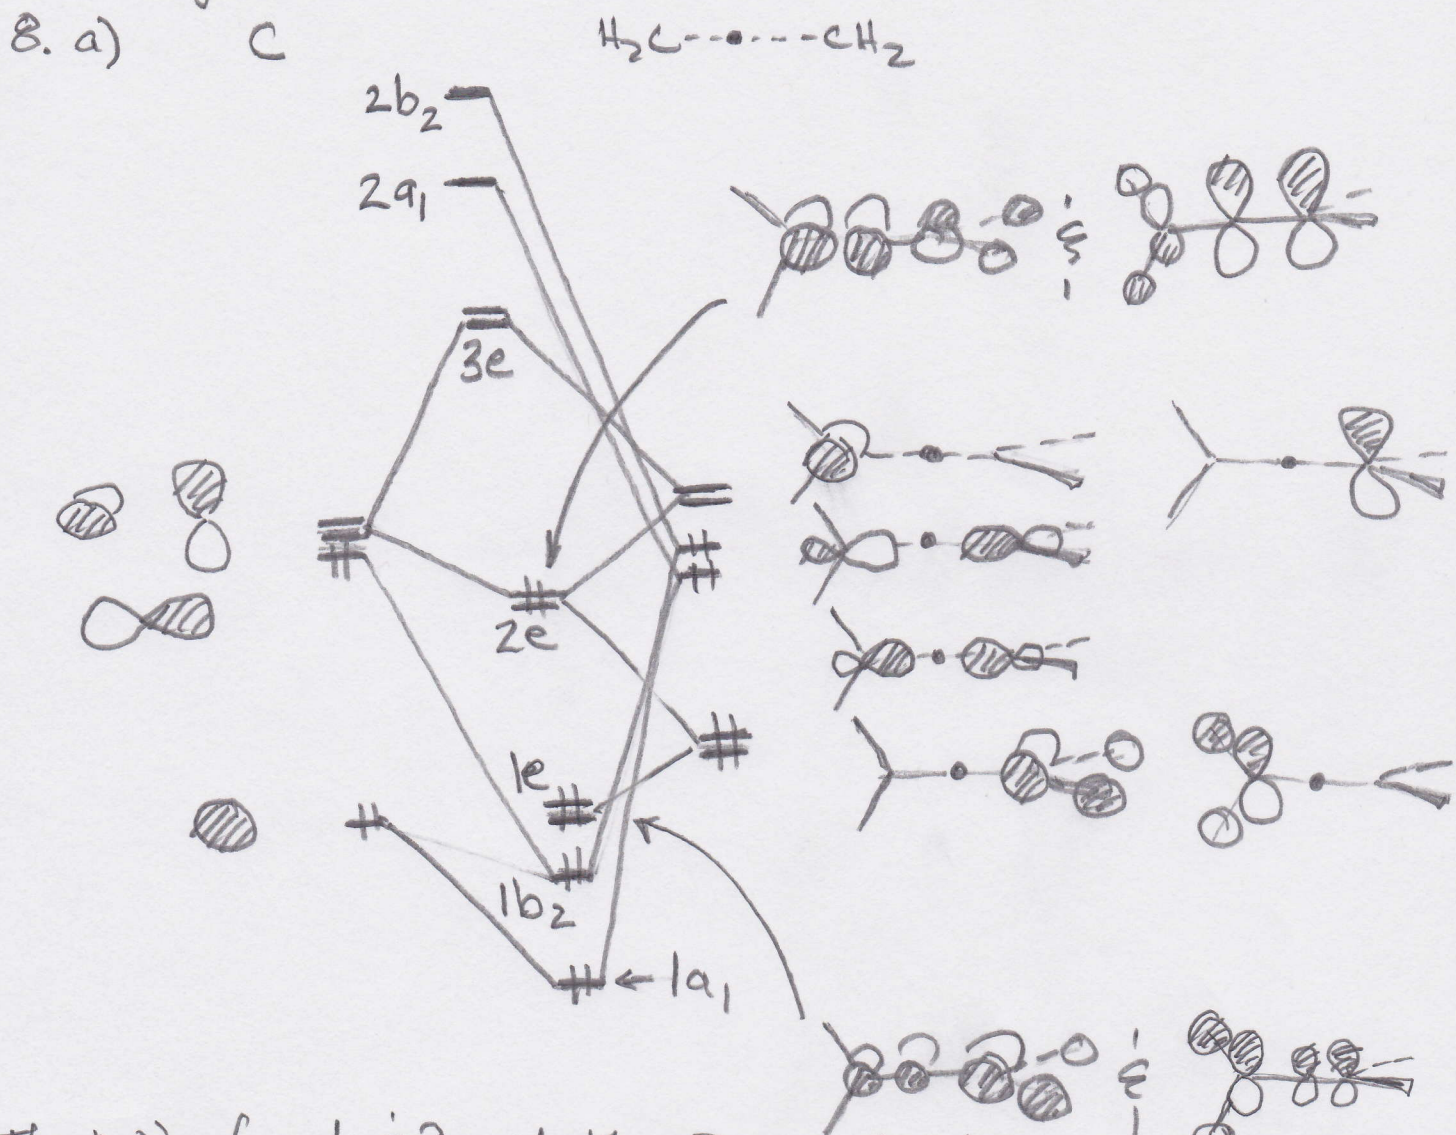 8. a) C H₂C---•---CH₂
2b₂
2a₁
3e
2e
1e
1b₂
←1a₁